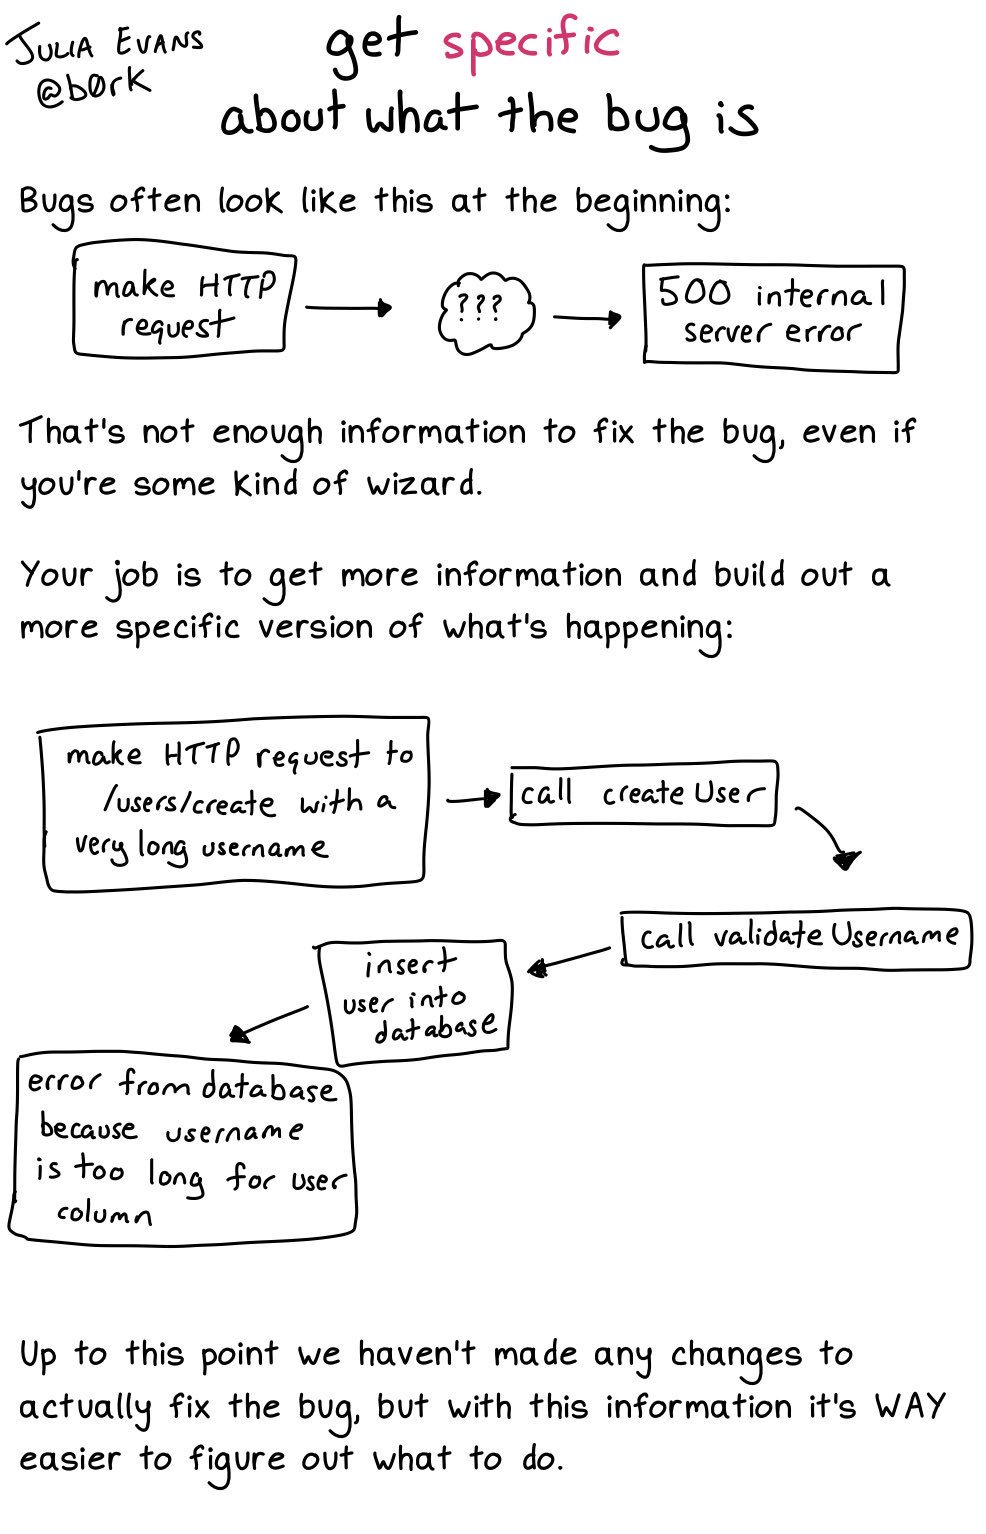 JULIA EVANS
@b0rk
get specific
about what the bug is
Bugs often look like this at the beginning:
make HTTP
request
???
500 internal
server error
That's not enough information to fix the bug, even if
you're some kind of wizard.
Your job is to get more information and build out a
more specific version of what's happening:
make HTTP request to
/users/create with a
very long username
call createUser
call validateUsername
insert
user into
database
error from database
because username
is too long for user
column
Up to this point we haven't made any changes to
actually fix the bug, but with this information it's WAY
easier to figure out what to do.